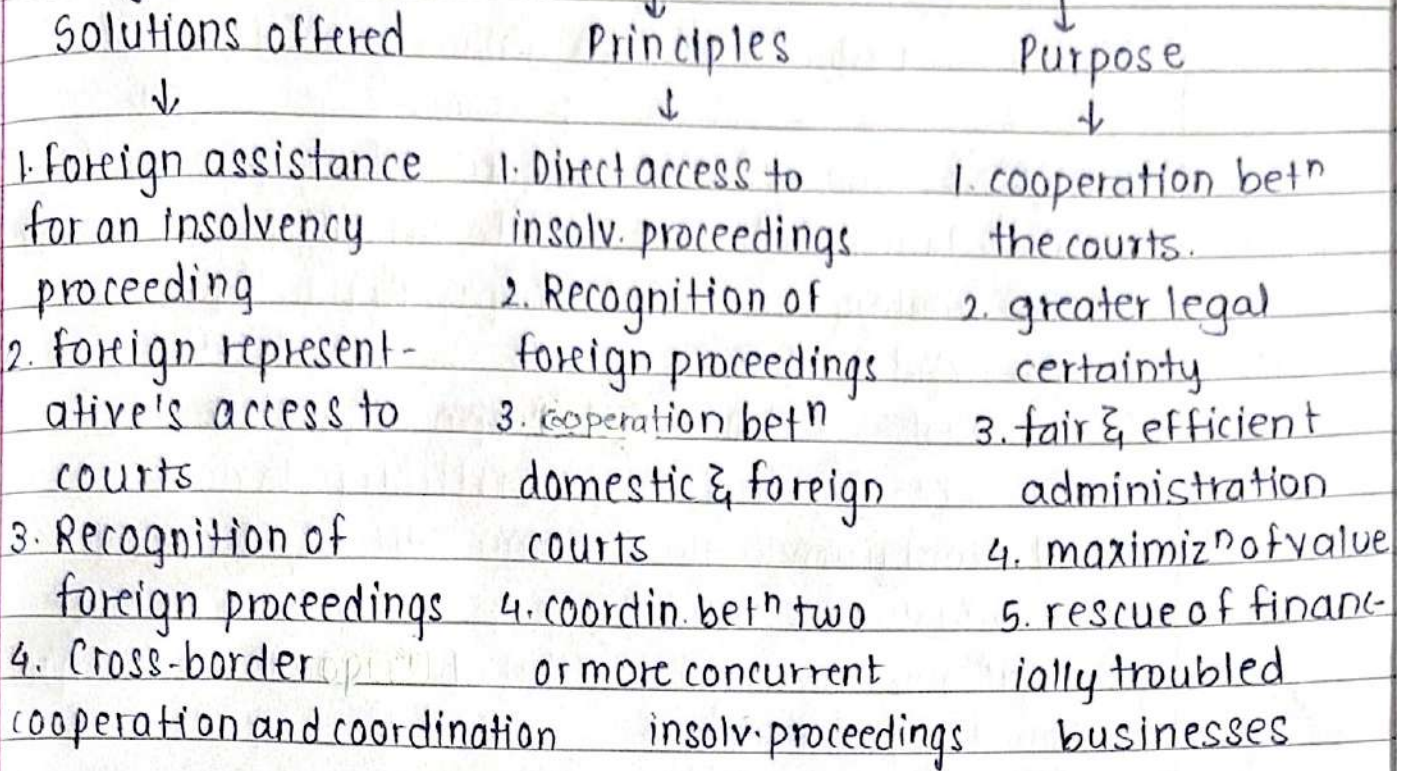 Solutions offered
↓
1. Foreign assistance
for an insolvency
proceeding
2. Foreign represent-
ative's access to
courts
3. Recognition of
foreign proceedings
4. Cross-border
cooperation and coordination
Principles
↓
1. Direct access to
insolv. proceedings
2. Recognition of
foreign proceedings
3. cooperation betⁿ
domestic & foreign
courts
4. coordin. betⁿ two
or more concurrent
insolv. proceedings
Purpose
↓
1. cooperation betⁿ
the courts.
2. greater legal
certainty
3. fair & efficient
administration
4. maximizⁿ of value
5. rescue of financ-
ially troubled
businesses